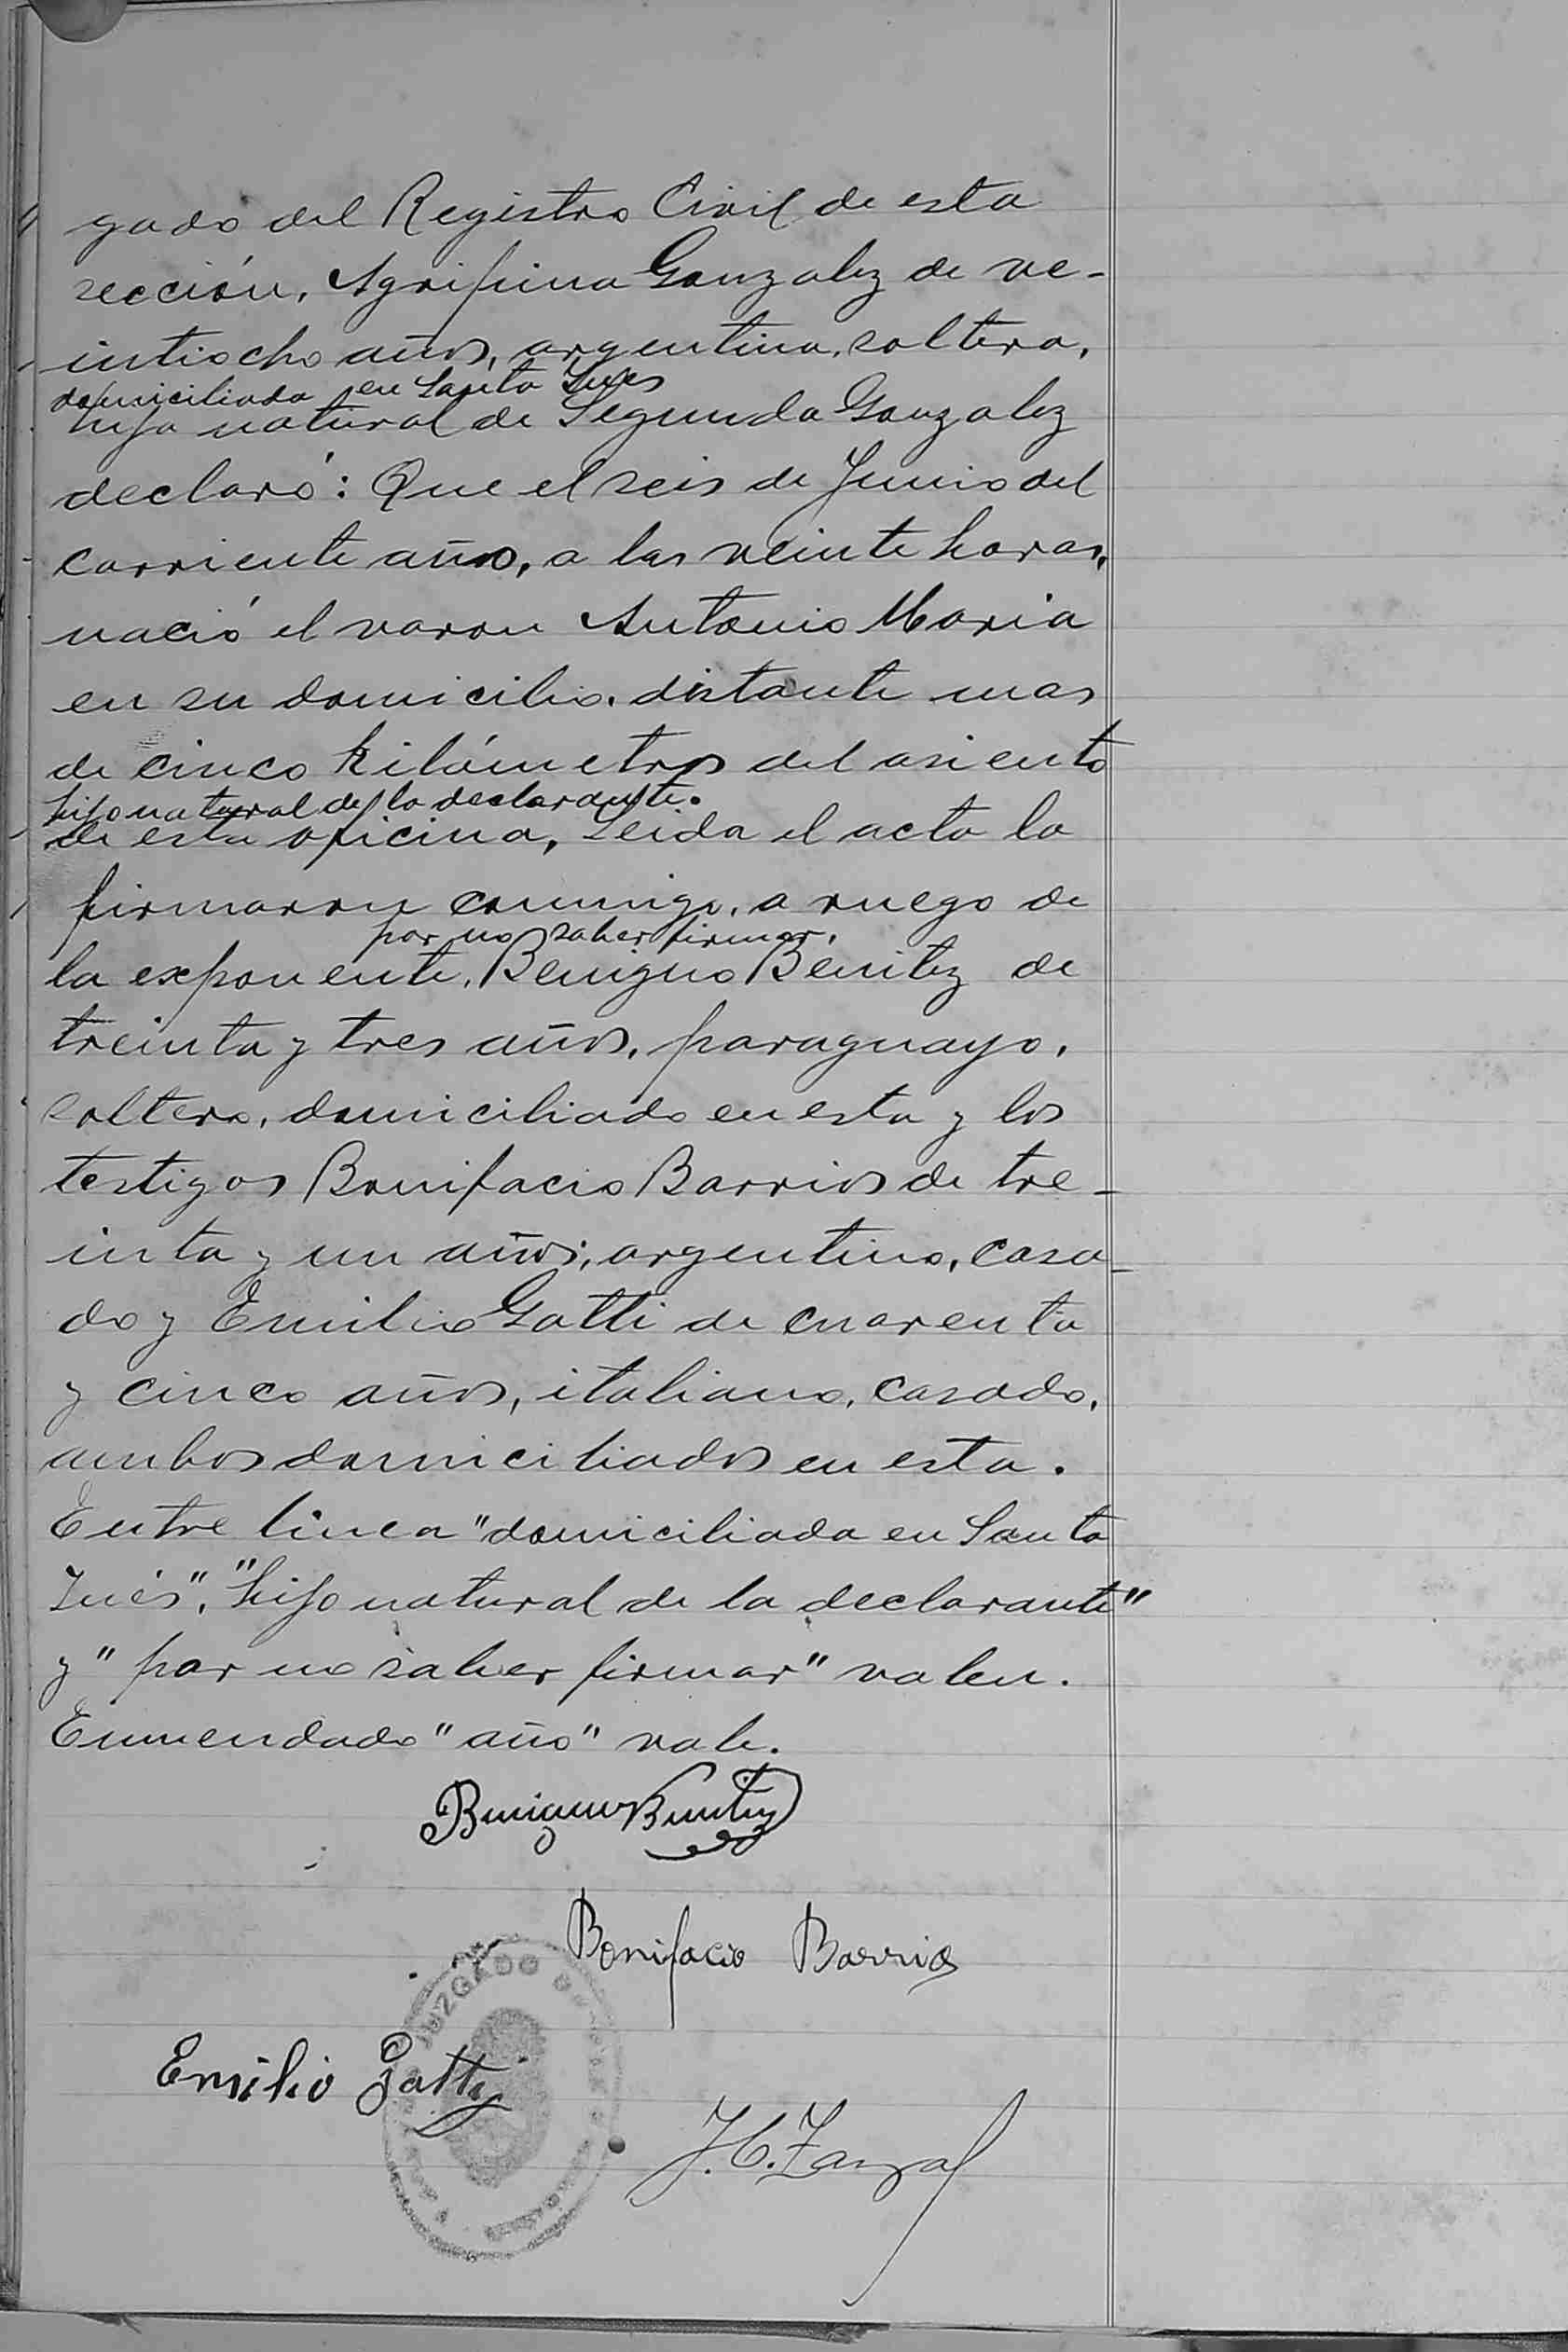 gado del Registro Civil de esta
sección, Agrifina Gonzalez de ve-
intiocho años, argentina, soltera,
domiciliada en Santa Inés
hija natural de Segunda Gonzalez
declaró: Que el seis de Junio del
corriente año, a las veinte horas,
nació el varon Antonio Maria
en su domicilio, distante mas
de cinco kilómetros del asiento
hijo natural de la declarante.
de esta oficina, Leida el acta la
firmaron conmigo, a ruego de
por no saber firmar,
la exponente, Benigno Benitez de
treinta y tres años, paraguayo,
soltero, domiciliado en esta y los
testigos Bonifacio Barrios de tre-
inta y un años, argentino, casa-
do y Emilio Gatti de cuarenta
y cinco años, italiano, casado,
ambos domiciliados en esta.
Entre linea "domiciliada en Santa
Inés", "hijo natural de la declarante"
y "por no saber firmar" valen.
Enmendado "año" vale.
Benigno Benitez
Bonifacio Barrios
JUZGADO
Emilio Gatti
J. C.